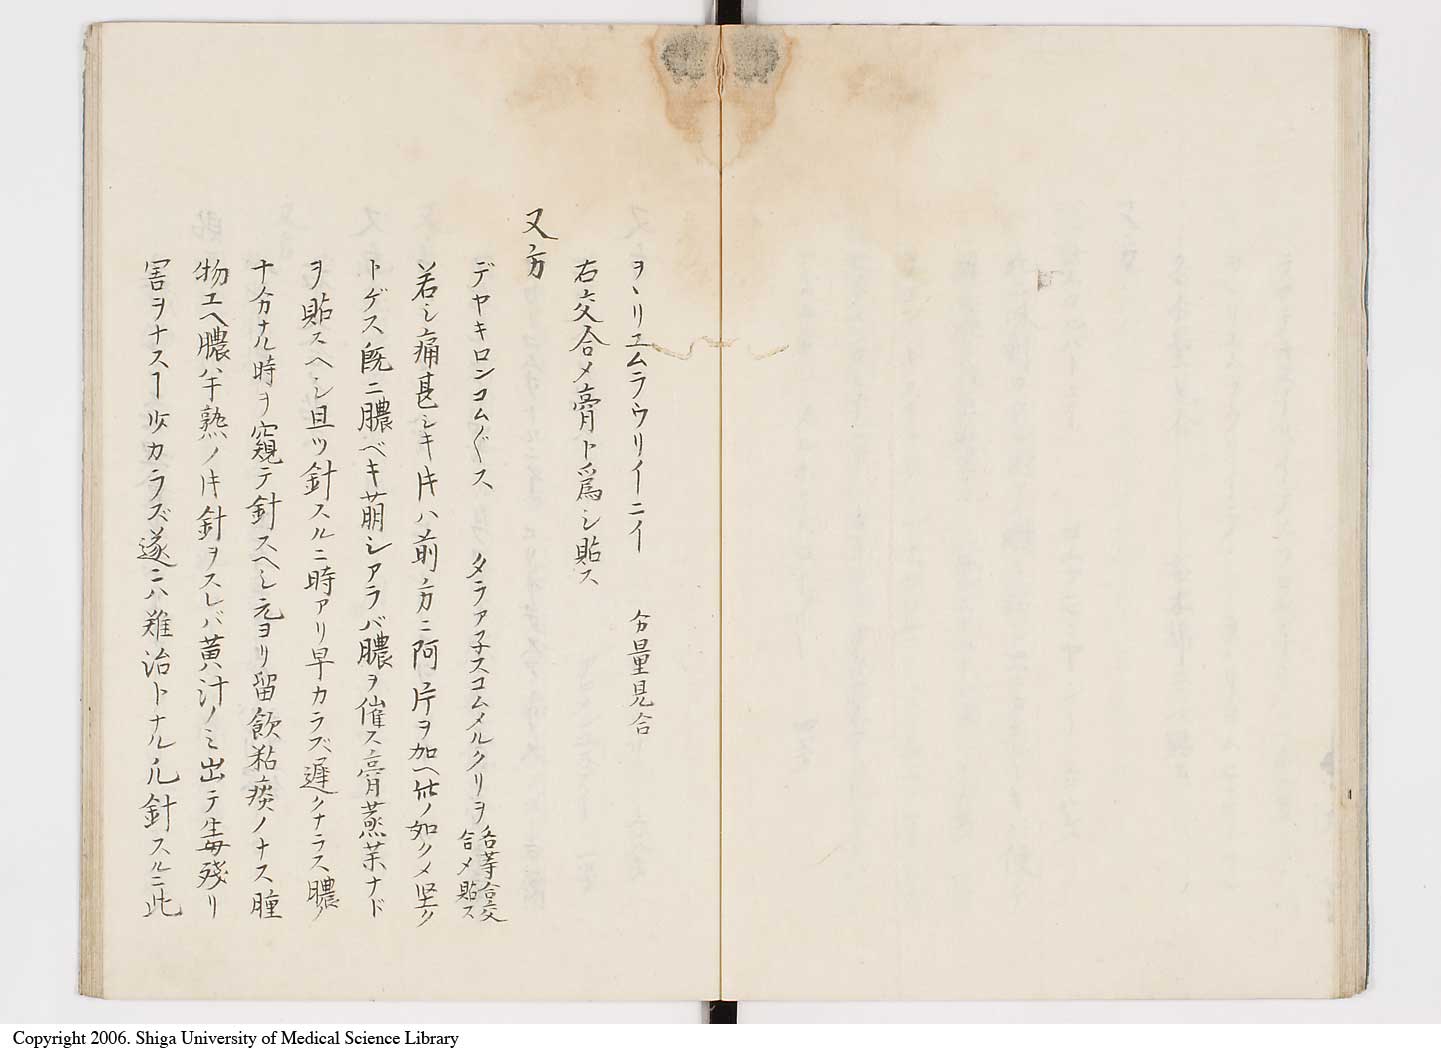 ヲヽリエムラウリイニイ　分量見合
右交合メ膏ト爲シ貼ス
又方
デヤキロンコムグス　タラアネスコムメルクリヲ 各等合交合メ貼ス
若シ痛甚シキ𪜈ハ前ノ方ニ阿片ヲ加ヘ此ノ如クメ坚ク
トゲス既ニ膿ベキ萠シアラバ膿ヲ催ス膏蒸荼ナド
ヲ貼スヘシ且ツ針スルニ時アリ早カラズ遲クナラス膿ノ
十分ナル時ヲ窺テ針スヘシ元ヨリ留飮粘痰ノナス腫
物エヘ膿半熟ノ𪜈針ヲスレバ黃汁ノミ出テ毒殘リ
害ヲナスヿ少カラズ遂ニハ難治トナル凡針スルニ此
Copyright 2006. Shiga University of Medical Science Library